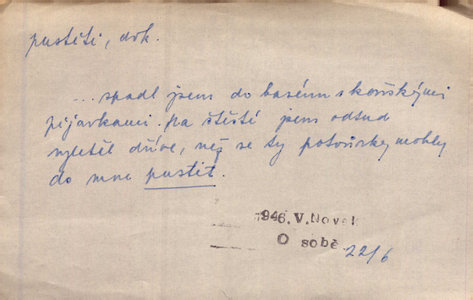 pustiti, dok.
...spadl jsem do basénu s koňskými
pijavkami. Na štěstí jsem odtud
vyletěl dříve, než se ty potvůrky mohly
do mne pustit.
1946. V. Novák
O sobě.
22/6